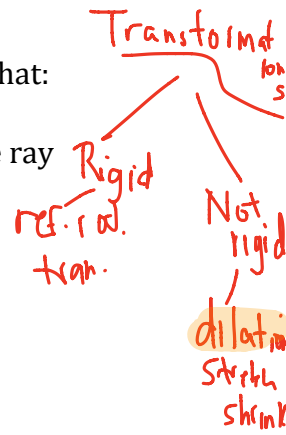 Transformat
ion
s
hat:
ray
Rigid
ref. rot.
tran.
Not
rigid
dilation
stretch
shrink